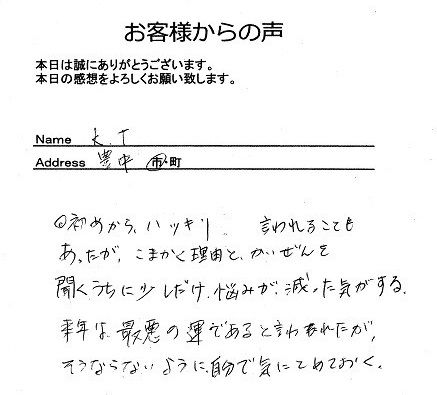 お客様からの声
本日は誠にありがとうございます。
本日の感想をよろしくお願い致します。
Name K.T
Address 豊中 市・町
初めから、ハッキリ 言われることも
あったが、こまかく理由と、かいぜんを
聞くうちに少しだけ、悩みが、減った気がする。
来年は、最悪の運であると言われたが、
そうならないように、自分で気にとめておく。